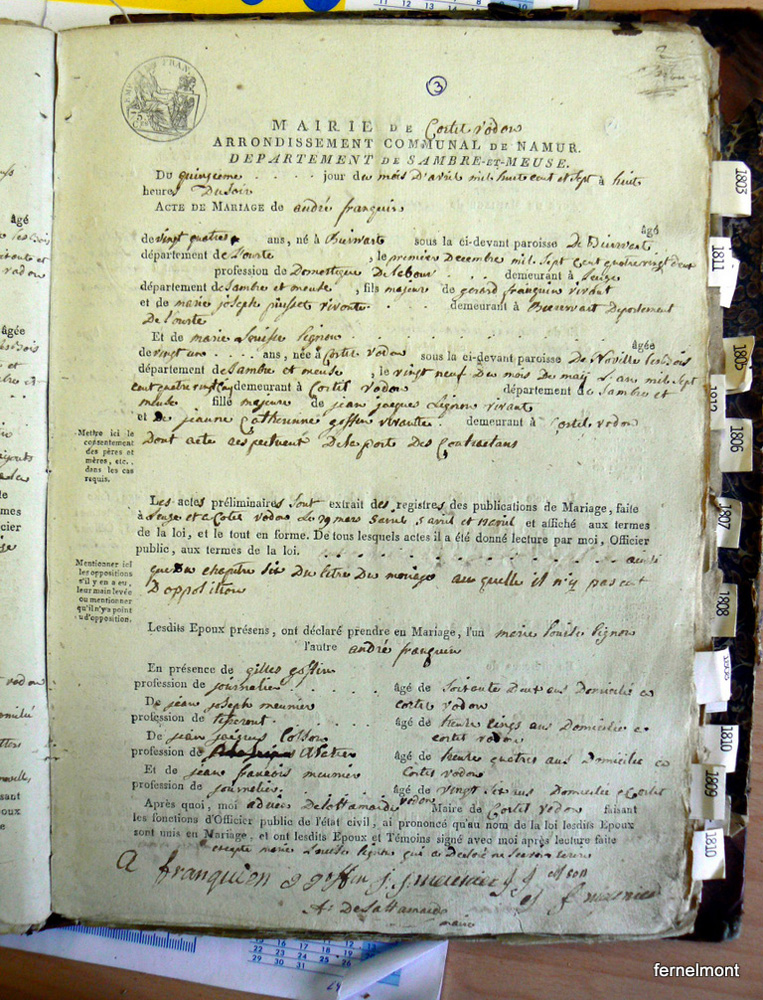 3
MAIRIE DE Cortil vodon
ARRONDISSEMENT COMMUNAL DE NAMUR.
DEPARTEMENT DE SAMBRE-ET-MEUSE.
Du quinzeme jour du mois D'avril mil huit cent et sept à huit
heures Du soir
ACTE DE MARIAGE de andré franquin
âgé
de vingt quatre ans, né à Bierwart sous la ci-devant paroisse De Bierwart
département de L'ourte, le premier Decembre mil sept cent quatre vingt deux
profession de Domestique De labour demeurant à Leuze
département de Sambre et meuse, fils majeure de gerard franquin vivant
et de marie joseph piesset vivante demeurant à Bierwart Departement
De L'ourte
Et de marie Louise Lignon âgée
de vingt un ans, née à Cortil vodon sous la ci-devant paroisse De Noville les Bois
département de Sambre et meuse, le vingt neuf Du mois De may L'an mil sept
cent quatre vingt cinq demeurant à Cortil vodon département de Sambre et
meuse fille majeure de jean jacques Lignon vivant
et De jeanne Catherinne goffin vivante demeurant à Cortil vodon
Mettre ici le
consentement
des pères et
mères, etc.,
dans les cas
requis.
Dont acte De la porte Des Contractans
Les actes préliminaires sont extrait des registres des publications de Mariage, faite
à Leuze et a Cortil vodon Le 29 mars 5 avril 5 avril et 12 avril et affiché aux termes
de la loi, et le tout en forme. De tous lesquels actes il a été donné lecture par moi, Officier
public, aux termes de la loi. ainsi
Mentionner ici
les oppositions
s'il y en a eu,
leur main levée
ou mentionner
qu'il n'y a point
d'opposition.
que Du chapitre six Du titre Du mariage auquelle il n'y pas eut
D'opposition
Lesdits Epoux présens, ont déclaré prendre en Mariage, l'un marie louise Lignon
l'autre andré franquin
En présence de gilles goffin
profession de journalier âgé de soixante Deux ans Domicilié a
cortil vodon
De jean joseph meunier
profession de tisserant âgé de trente cinqs ans Domicilié a
cortil vodon
De jean jacques Cosson
profession de âgé de trente quatres ans Domicilié a
Cortil vodon
Et de jean françois meunier
profession de journalier âgé de vingt six ans Domicilié a Cortil
vodon
Après quoi, moi adrien Delattamaide Maire de Cortil vodon faisant
les fonctions d'Officier public de l'état civil, ai prononcé qu'au nom de la loi lesdits Epoux
sont unis en Mariage, et ont lesdits Epoux et Témoins signé avec moi après lecture faite
excepté marie Louise lignon qui a Declaré ne
A franquion g goffin j. j. meunier
j f meunier
A: Delattamaide
maire
1803
1811
1805
1812
1806
1807
1808
1810
1809
1810
fernelmont